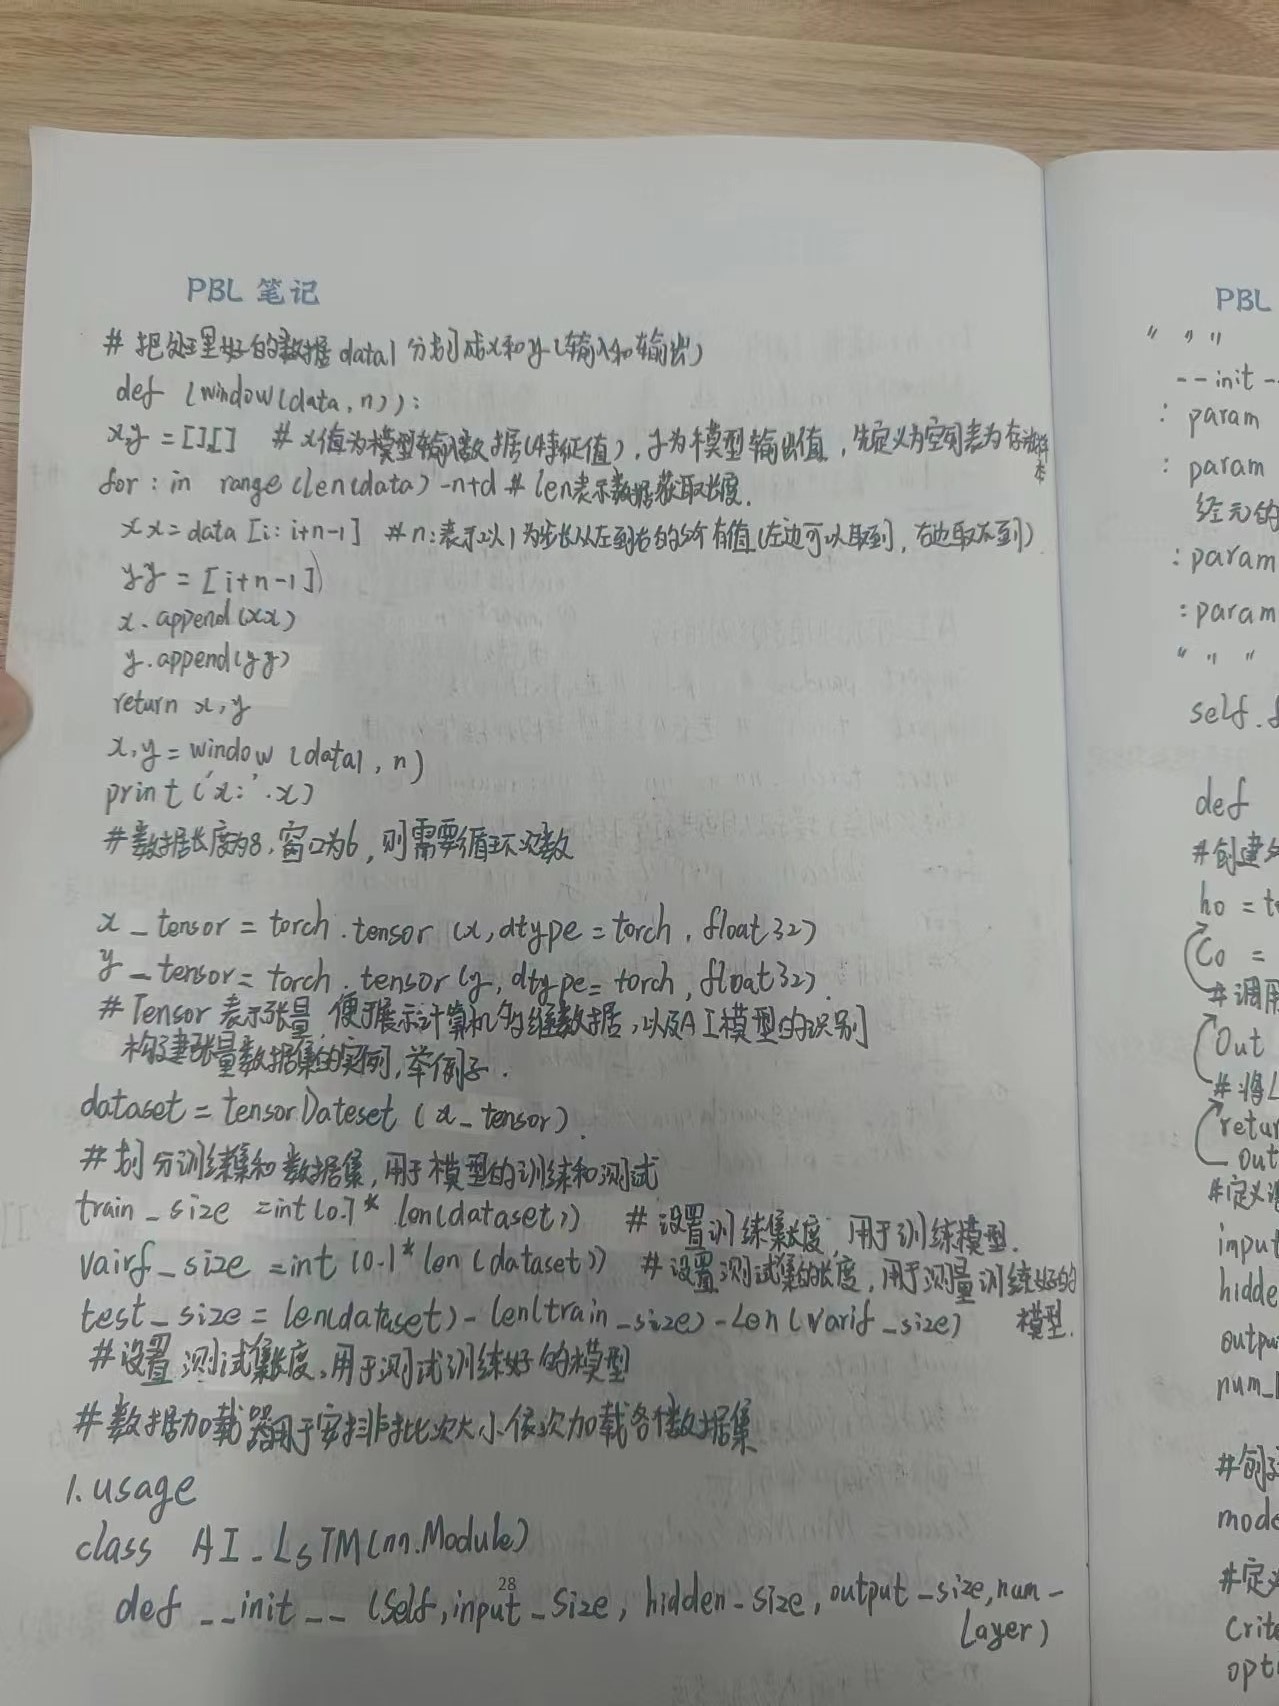 PBL 笔记
# 把处理好的数据 data1 分割成x和y(输入和输出)
def (window(data, n)):
x,y = [][] # x值为模型输入数据(特征值), y为模型输出值, 先定义为空列表为存
for : in range (len(data) -n+d # len表示数据获取长度.
xx = data [i: i+n-1] # n:表示以1为步长从左到右的5个有值(左边可以取到, 右边取不到)
yy = [i+n-1])
x. append(xx)
y. append(yy)
return x, y
x, y = window (data1, n)
print ('x: '.x)
# 数据长度为8, 窗口为6, 则需要循环次数
x _ tensor = torch . tensor (x, dtype = torch . float 32)
y _ tensor = torch . tensor (y, dtype = torch . float 32).
# Tensor 表示张量, 便于展示计算机多维数据, 以及AI模型的识别
构建张量数据集的实例, 举例子.
dataset = tensorDateset (x_ tensor).
# 划分训练集和数据集, 用于模型的训练和测试
train _ size = int (0.7 * len(dataset)) # 设置训练集长度, 用于训练模型.
vairf _ size = int (0.1 * len (dataset)) # 设置测试集的长度, 用于测量训练好的
模型.
test _ size = len(dataset) - len(train _size) - Len (varif _size)
# 设置测试集长度, 用于测试训练好的模型
# 数据加载器用于安排批次大小依次加载各个数据集
1. usage
class AI _ LSTM (nn.Module)
def _ _ init _ _ (Self, input _ Size, hidden _ size, output _size, num _
Layer)
28
PBL
" " "
- - init -
: param
: param
经元的
: param
: param
" " "
self.
def
# 创建
h0 =
C0 =
# 调用
Out
# 将L
retur
out
# 定义
input
hidde
outpu
num_
mode
# 定义
Crite
opti